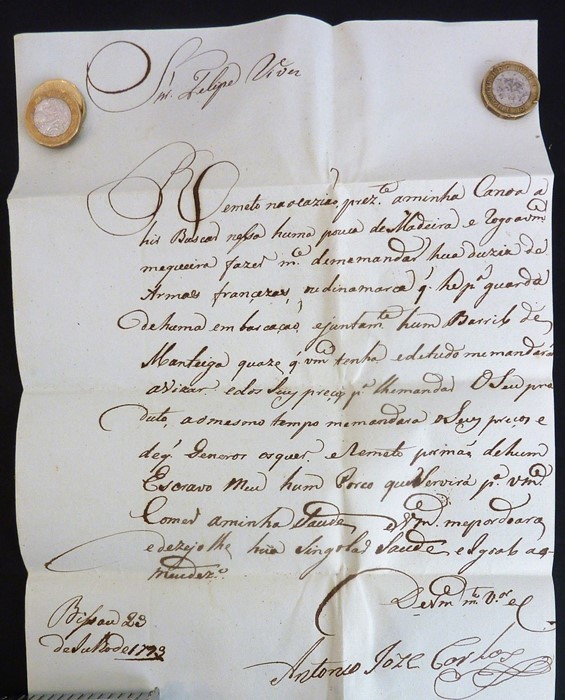 Snr. Felipe Viver
Remeto na ocazião prezte. aminha Canoa a
hir Buscar nessa huma pouca de Madeira e rogo avmce
me queira fazer mce. de memandar hua duzia de
Armas francezas, ou dinamarca q. he pa. guarda
de huma embarcaçaõ, ejuntamte. hum Barril de
Manteiga q. vmce tenha e de tudo memandará
avizar, e dos Seus preços pa. lhemandar O Seu pro
duto, ao mesmo tempo memandara os Seus precos e
de q. Generos os quer, e Remeto por mão de hum
Escravo Meu hum Porco que Servira pa. vmce.
Comer aminha Saude, e Vmce. me perdoara
e dezejolhe hua Singolar Saude, e
De Vmce mto Vor e C
Bissau 23
de Julho de 1793
Antonio Joze Carlos